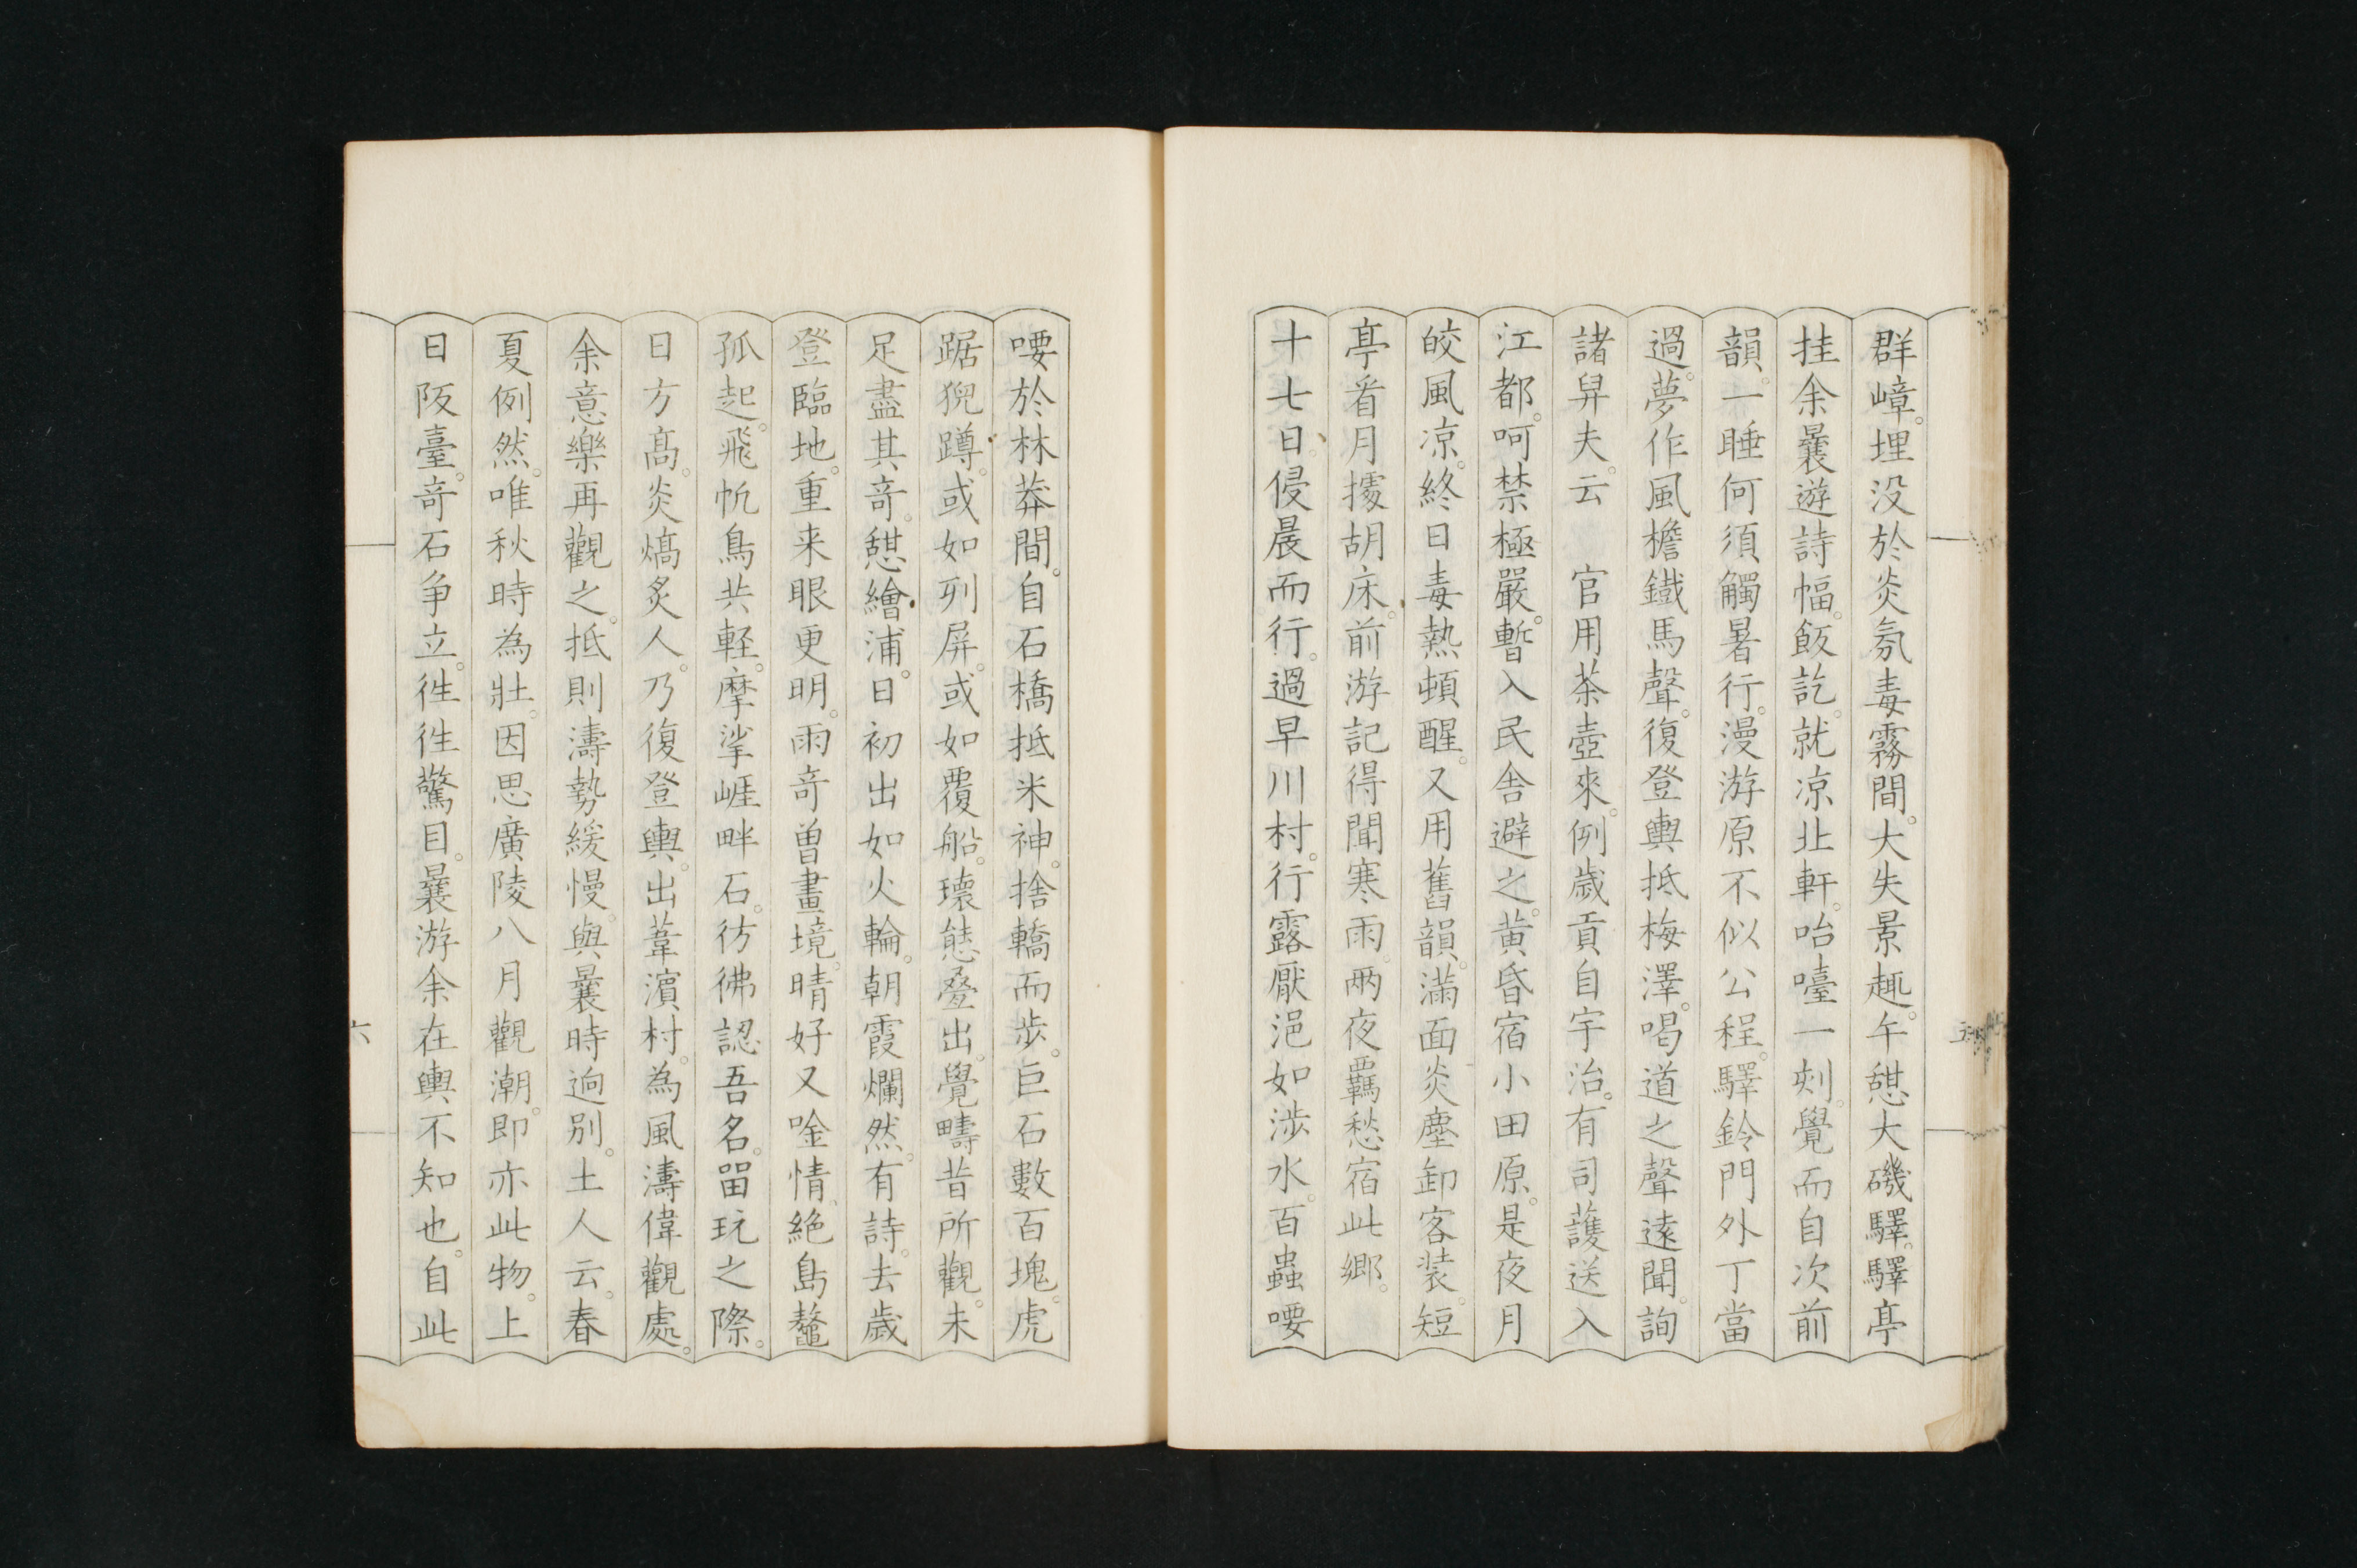 群嶂。埋没於炎氛毒霧間。大失景趣。午憇大磯驛。驛亭
挂余曩遊詩幅。飯訖。就凉北軒。咍嚏一刻。覺而自次前
韻。一睡何須觸暑行。漫游原不似公程。驛鈴門外丁當
過。夢作風檐鐵馬聲。復登輿抵梅澤。喝道之聲遠聞。詢
諸舁夫。云　官用茶壺來。例歲貢自宇治。有司護送入
江都。呵禁極嚴。暫入民舎避之。黄昏宿小田原。是夜月
皎風凉。終日毒熱頓醒。又用舊韻。滿面炎塵卸客装。短
亭看月據胡床。前游記得聞寒雨。兩夜羈愁宿此郷。
十七日侵晨而行。過早川村。行露厭浥如渉水。百蟲喓
喓於林莽間。自石橋抵米神。捨轎而歩。巨石數百塊。虎
踞猊蹲。或如列屏。或如覆船。瓌態疊出。覺疇昔所觀。未
足盡其竒。憇繪浦。日初出如火輪。朝霞爛然。有詩。去歲
登臨地。重来眼更明。雨竒曽畫境。晴好又唫情。絶島鼇
孤起。飛帆鳥共軽。摩挲崕畔石。彷彿認吾名。畱玩之際。
日方高。炎熇炙人。乃復登輿。出葦濱村。為風濤偉觀處。
余意樂再觀之。抵則濤勢緩慢。與曩時逈別。土人云。春
夏例然。唯秋時為壯。因思廣陵八月觀潮。即亦此物。上
日阪臺。竒石争立。徃徃驚目。曩游余在輿不知也。自此
六